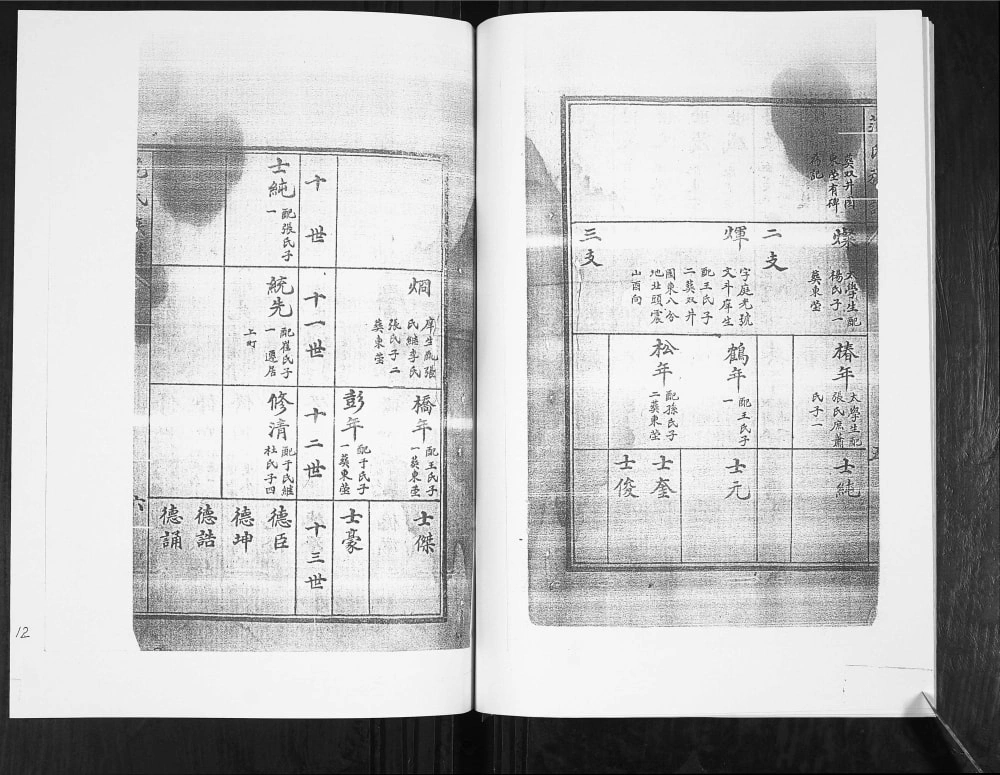 葬双井固
東塋有碑
為記
燦
太學生配
楊氏子一
葬東塋
二支
煇
字庭光號
文斗庠生
配王氏子
二葬双井
固東八分
地北頭震
山酉向
三支
椿年
太學生配
張氏庶蕭
氏子一
鶴年
配王氏子
一
松年
配孫氏子
二葬東塋
士純
士元
士奎
士俊
烱
庠生配張
氏繼李氏
張氏子二
葬東塋
橋年
配王氏子
一葬東塋
彭年
配于氏子
一葬東塋
士傑
士豪
十世
十一世
十二世
十三世
士純
配張氏子
一
統先
配崔氏子
一遷居
上町
修清
配于氏繼
杜氏子四
德臣
德坤
德誥
德誦
六
12